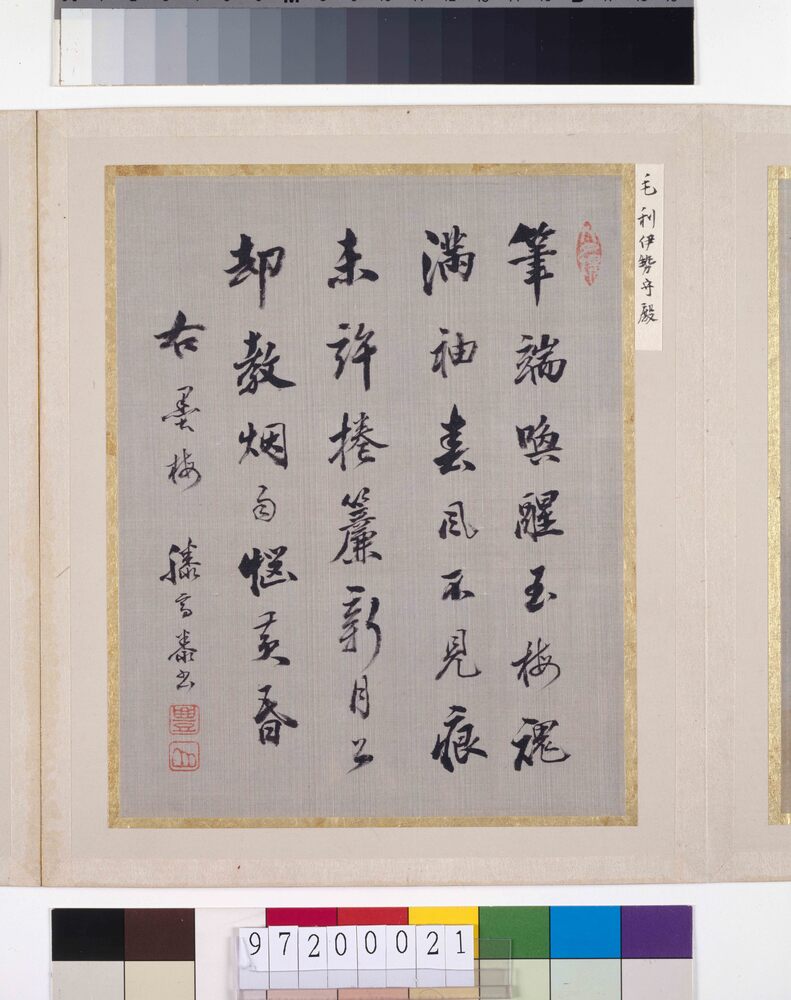 毛利伊勢守殿
筆端喚醒玉梅魂
滿袖春風不見痕
未許捲簾新月上
却教烟雨惱黄昏
右墨梅 滕高泰書
豊
山
97200021